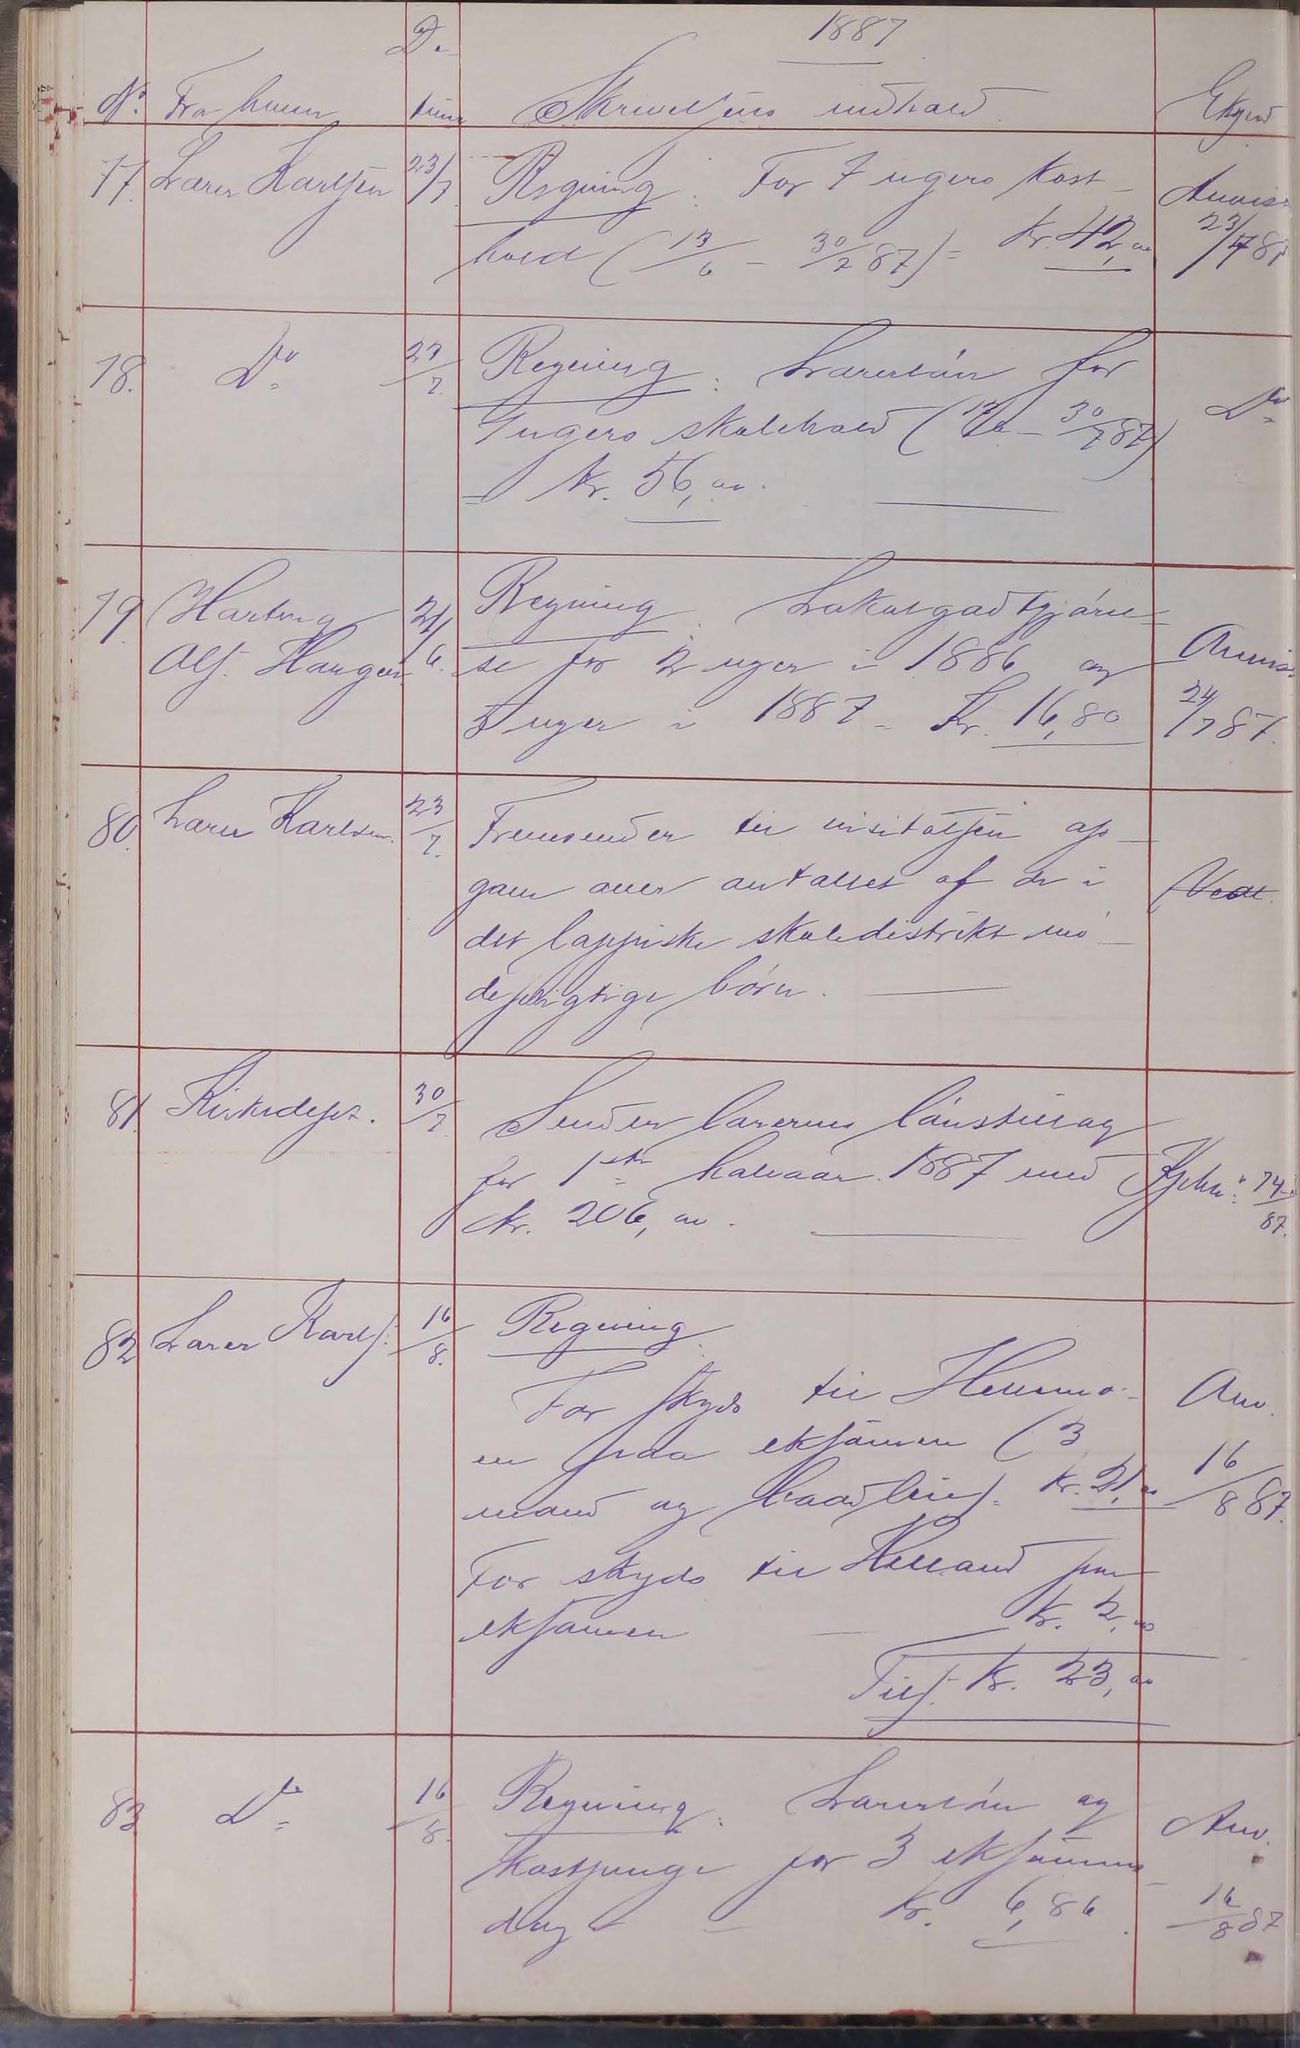 1887
No. Fra hvem Da- tum Skrivelsens indhold. Exped
77. Lærer Karlsen 23/7 Regning. For 7 ugers kost-
hold (13/6 – 30/7 87) = Kr. 42,00 Anvist 23/7 87
78. Do 23/7 Regning. Lærerløn for
7 ugers skolehold (13/6 – 30/7 87) Do
= Kr. 56,00.
79. Hartvig 21/6 Regning. Lokalgodtgjørel-
Alf. Haugen se for 2 uger i 1886 og Anvist
uger i 1887 = Kr. 16,80 24/7 87.
80. Lærer Karlsen. 23/7. Fremsender til visitatsen op-
gave over antallet af de i Vedl.
det lappiske skoledistrikt mø-
depligtige børn.
81. Kirkedept. 30/7. Sender lærernes lønstillæg
for 1ste halvaar 1887 med 74/87.
Kr. 206,00.
82 Lærer Karls. 16/8. Regning.
For skyds til Hellemo- Anv.
en paa eksamen (3 16/8 87.
mand og baadleie). Kr. 21,00
For skyds til Helland paa
eksamen Kr. 2,00
Tils. Kr. 23,00
83 Do 16/8. Regning. Lærerløn og Anv.
kostpenge for 3 eksamens-
dage Kr. 6,86. 16/8 87